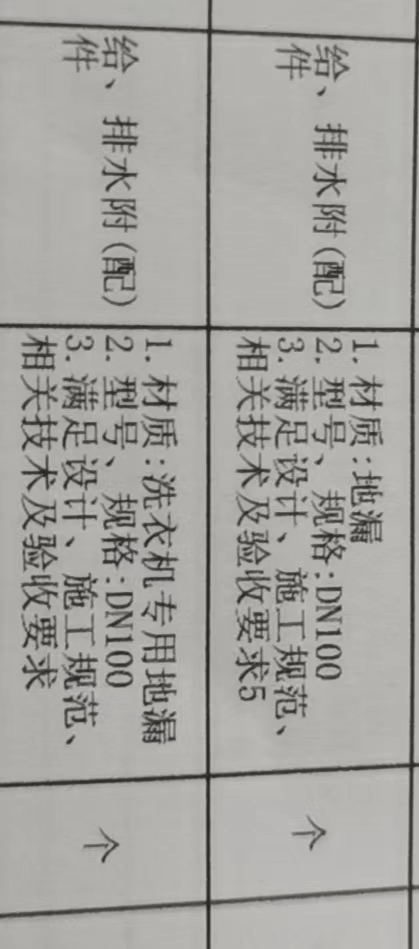 给、排水附(配)
件
1.材质:地漏
2.型号、规格:DN100
3.满足设计、施工规范、
相关技术及验收要求5
个
给、排水附(配)
件
1.材质:洗衣机专用地漏
2.型号、规格:DN100
3.满足设计、施工规范、
相关技术及验收要求
个